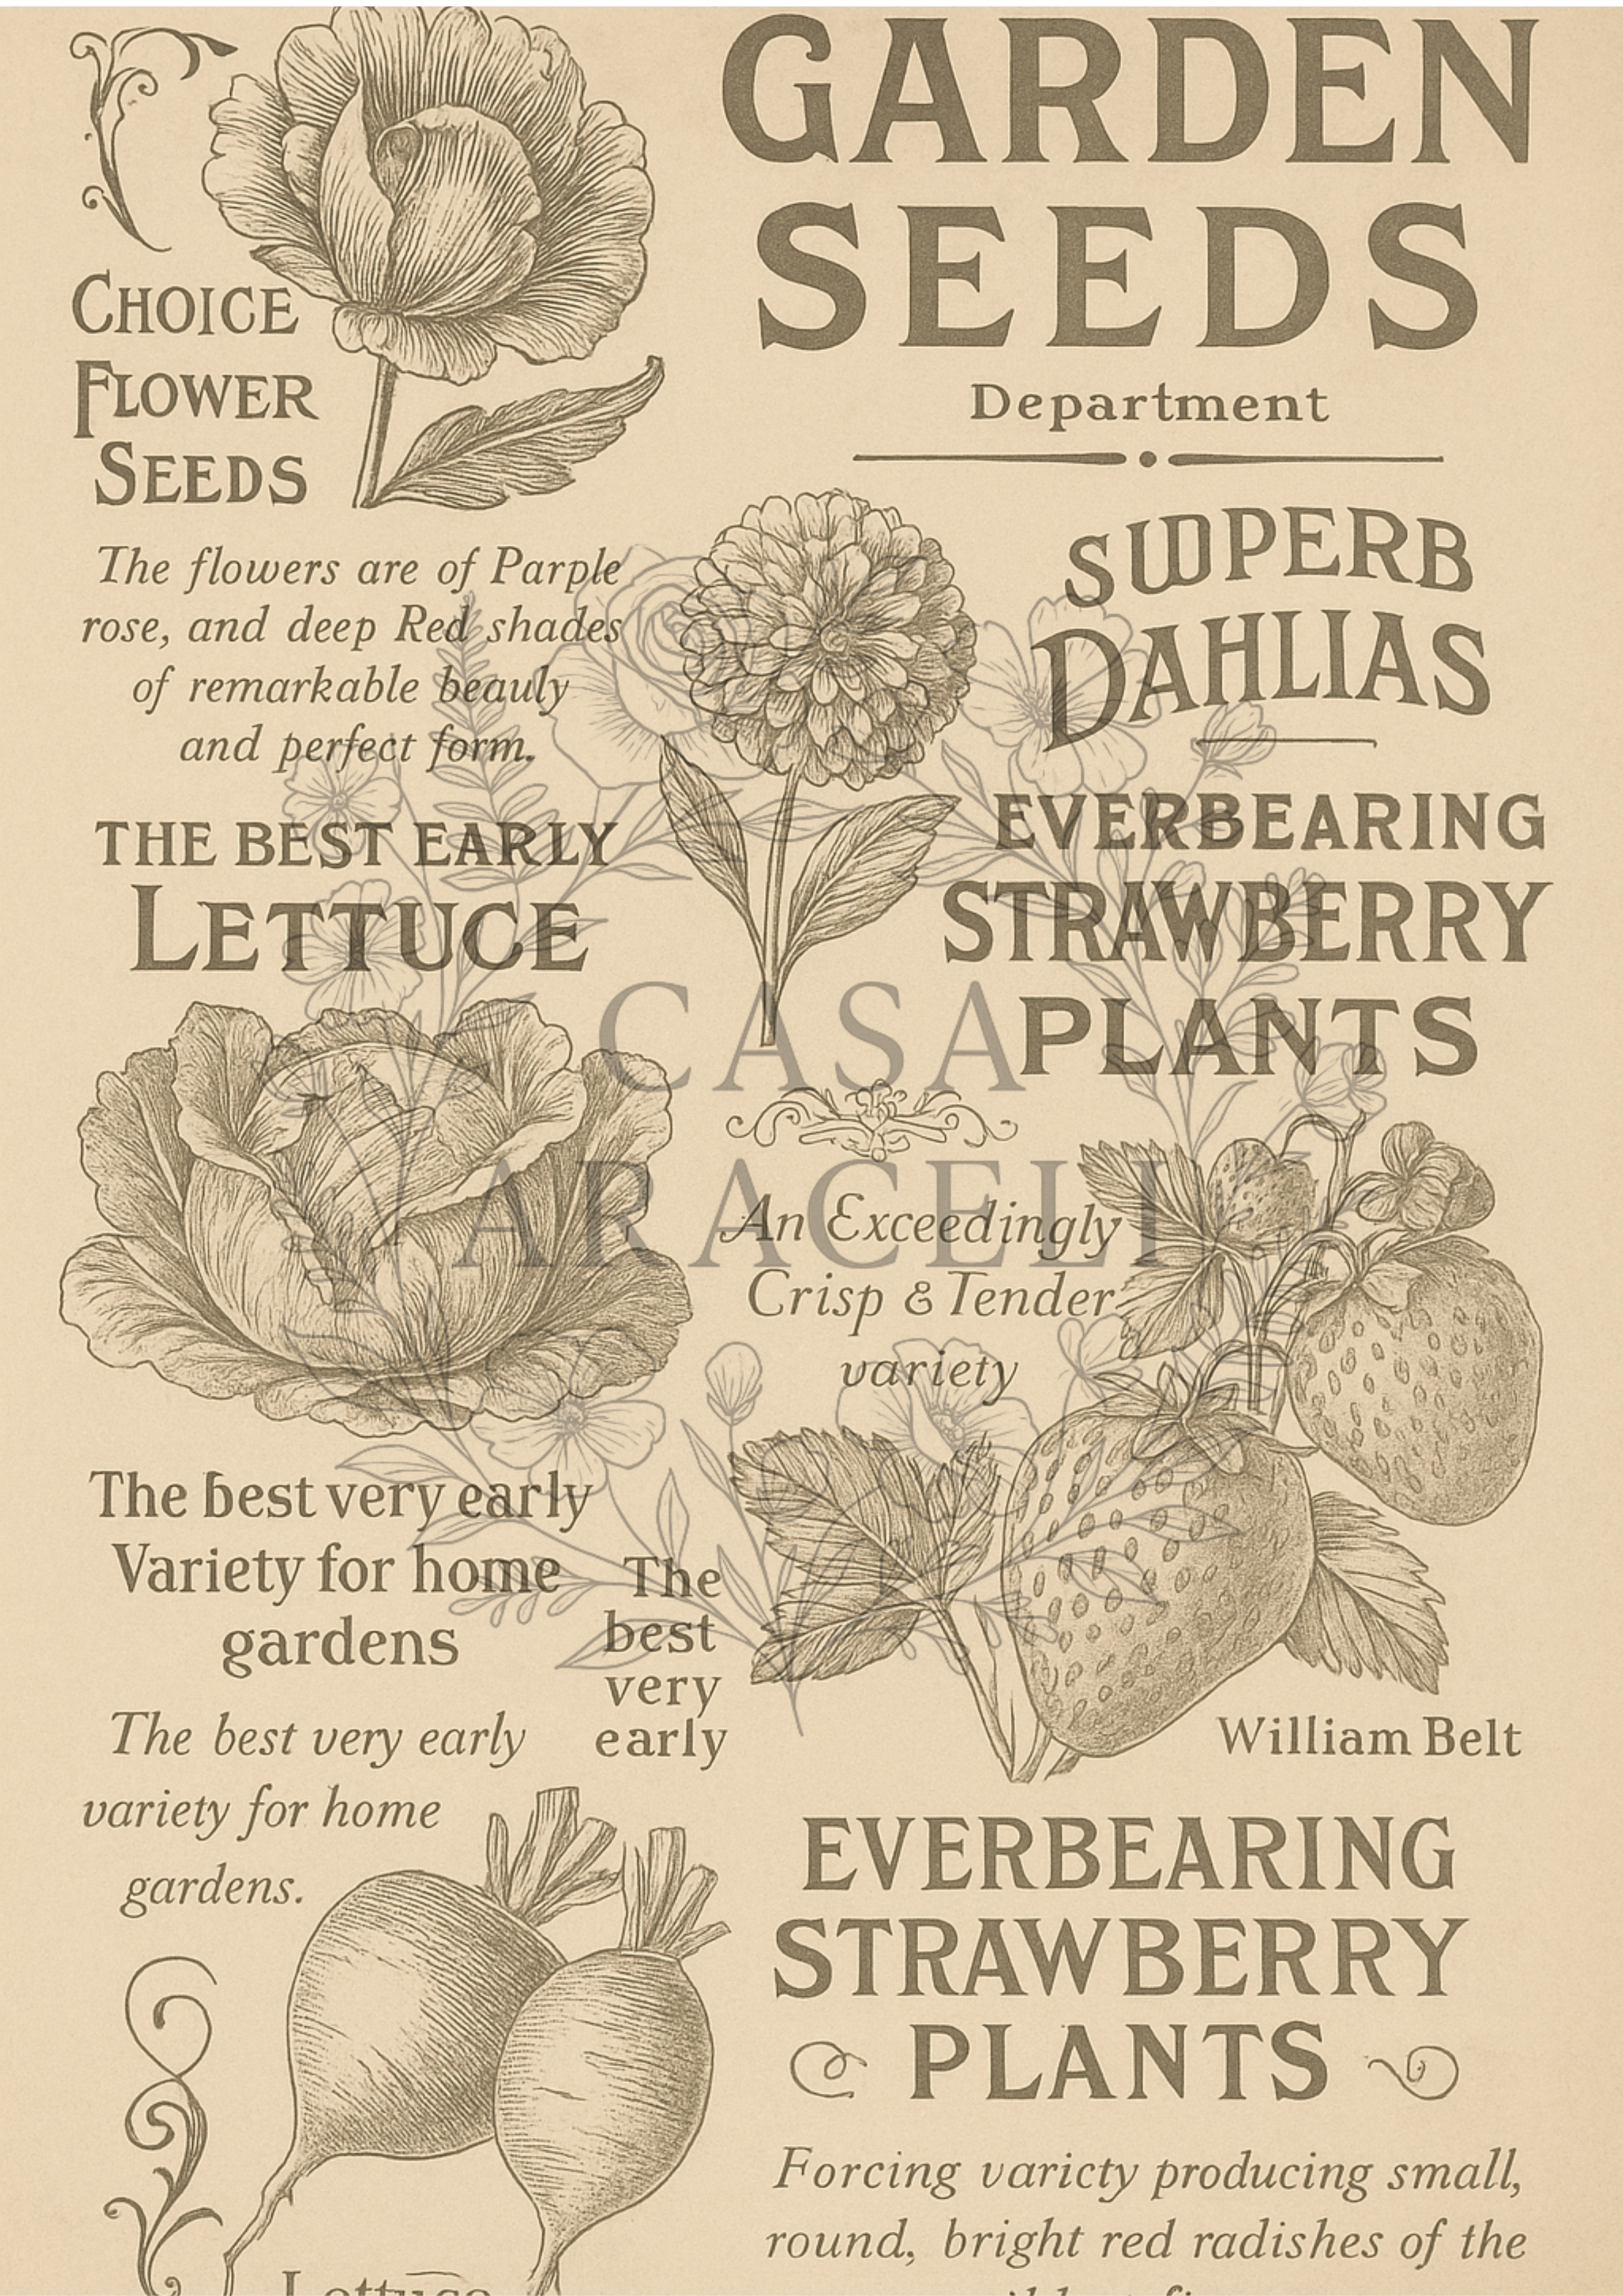 GARDEN
SEEDS
Department
CHOICE
FLOWER
SEEDS
The flowers are of Parple
rose, and deep Red shades
of remarkable beauly
and perfect form.
SUPERB
DAHLIAS
THE BEST EARLY
LETTUCE
EVERBEARING
STRAWBERRY
PLANTS
CASA
ARACELI
An Exceedingly
Crisp & Tender
variety
The best very early
Variety for home
gardens
The
best
very
early
The best very early
variety for home
gardens.
William Belt
EVERBEARING
STRAWBERRY
PLANTS
Forcing varicty producing small,
round, bright red radishes of the